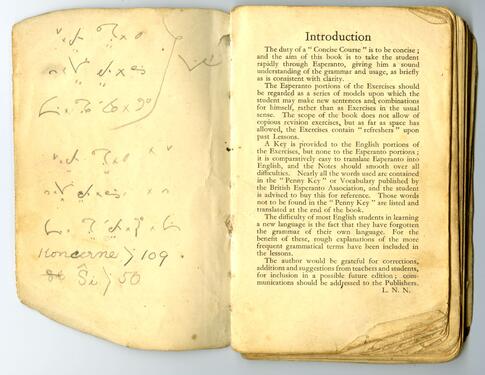 Koncerne > 109
Si > 50
Introduction
The duty of a " Concise Course " is to be concise ;
and the aim of this book is to take the student
rapidly through Esperanto, giving him a sound
understanding of the grammar and usage, as briefly
as is consistent with clarity.
The Esperanto portions of the Exercises should
be regarded as a series of models upon which the
student may make new sentences and combinations
for himself, rather than as Exercises in the usual
sense. The scope of the book does not allow of
copious revision exercises, but as far as space has
allowed, the Exercises contain " refreshers " upon
past Lessons.
A Key is provided to the English portions of
the Exercises, but none to the Esperanto portions ;
it is comparatively easy to translate Esperanto into
English, and the Notes should smooth over all
difficulties. Nearly all the words used are contained
in the " Penny Key " or Vocabulary published by
the British Esperanto Association, and the student
is advised to buy this for reference. Those words
not to be found in the " Penny Key " are listed and
translated at the end of the book.
The difficulty of most English students in learning
a new language is the fact that they have forgotten
the grammar of their own language. For the
benefit of these, rough explanations of the more
frequent grammatical terms have been included in
the lessons.
The author would be grateful for corrections,
additions and suggestions from teachers and students,
for inclusion in a possible future edition ; com-
munications should be addressed to the Publishers.
L. N. N.